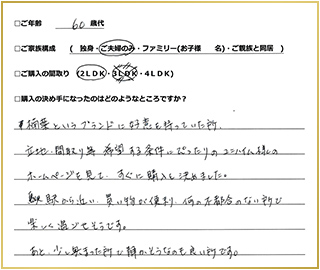 □ご年齢　60　歳代
□ご家族構成　（ 独身・ご夫婦のみ・ファミリー(お子様　　名)・ご親族と同居 ）
□ご購入の間取り　（2LDK・3LDK・4LDK）
□購入の決め手になったのはどのようなところですか？
というブランドに好意を持っていた所、
立地・間取り等 希望する条件にぴったりのユニハイム様の
ホームページを見て、すぐに購入を決めました。
駅から近い、買い物が便利、何の不都合のない所で
楽しく過ごせそうです。
あと、少し奥まった所で静かそうなのも良い所です。